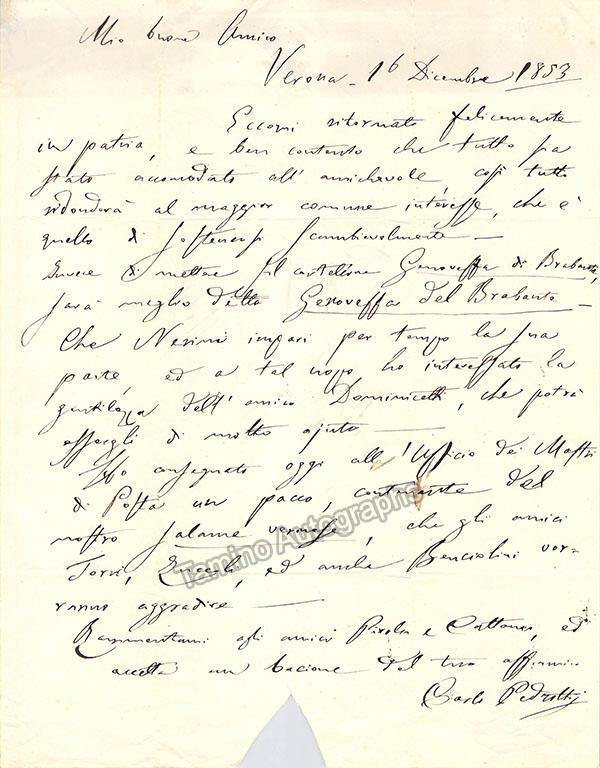 Mio buon Amico
Verona - 16 Dicembre 1853
Eccomi ritornato felicemente
in patria, e ben contento che tutto sia
stato accomodato all'amichevole così tutto
ridonderà al maggior comune interesse, che è
quello di sostenersi scambievolmente —
Invece di mettere sul cartellone Genoveffa di Brabante,
sarà meglio detto Genoveffa del Brabante —
Che Nerini impari per tempo la sua
parte, ed a tal uopo ho interessato la
gentilezza dell'amico Dominicetti, che potrà
essergli di molto ajuto —
Ho consegnato oggi all'Ufficio dei Mastri
di Posta un pacco, contenente del
nostro salame veronese, che gli amici
Torri, ed anche Benciolini vor-
ranno aggradire —
Rammentami agli amici Pirola e Cattaneo, ed
accetta un bacione dal tuo affmo
Carlo Pedrotti
Tamino Autographs